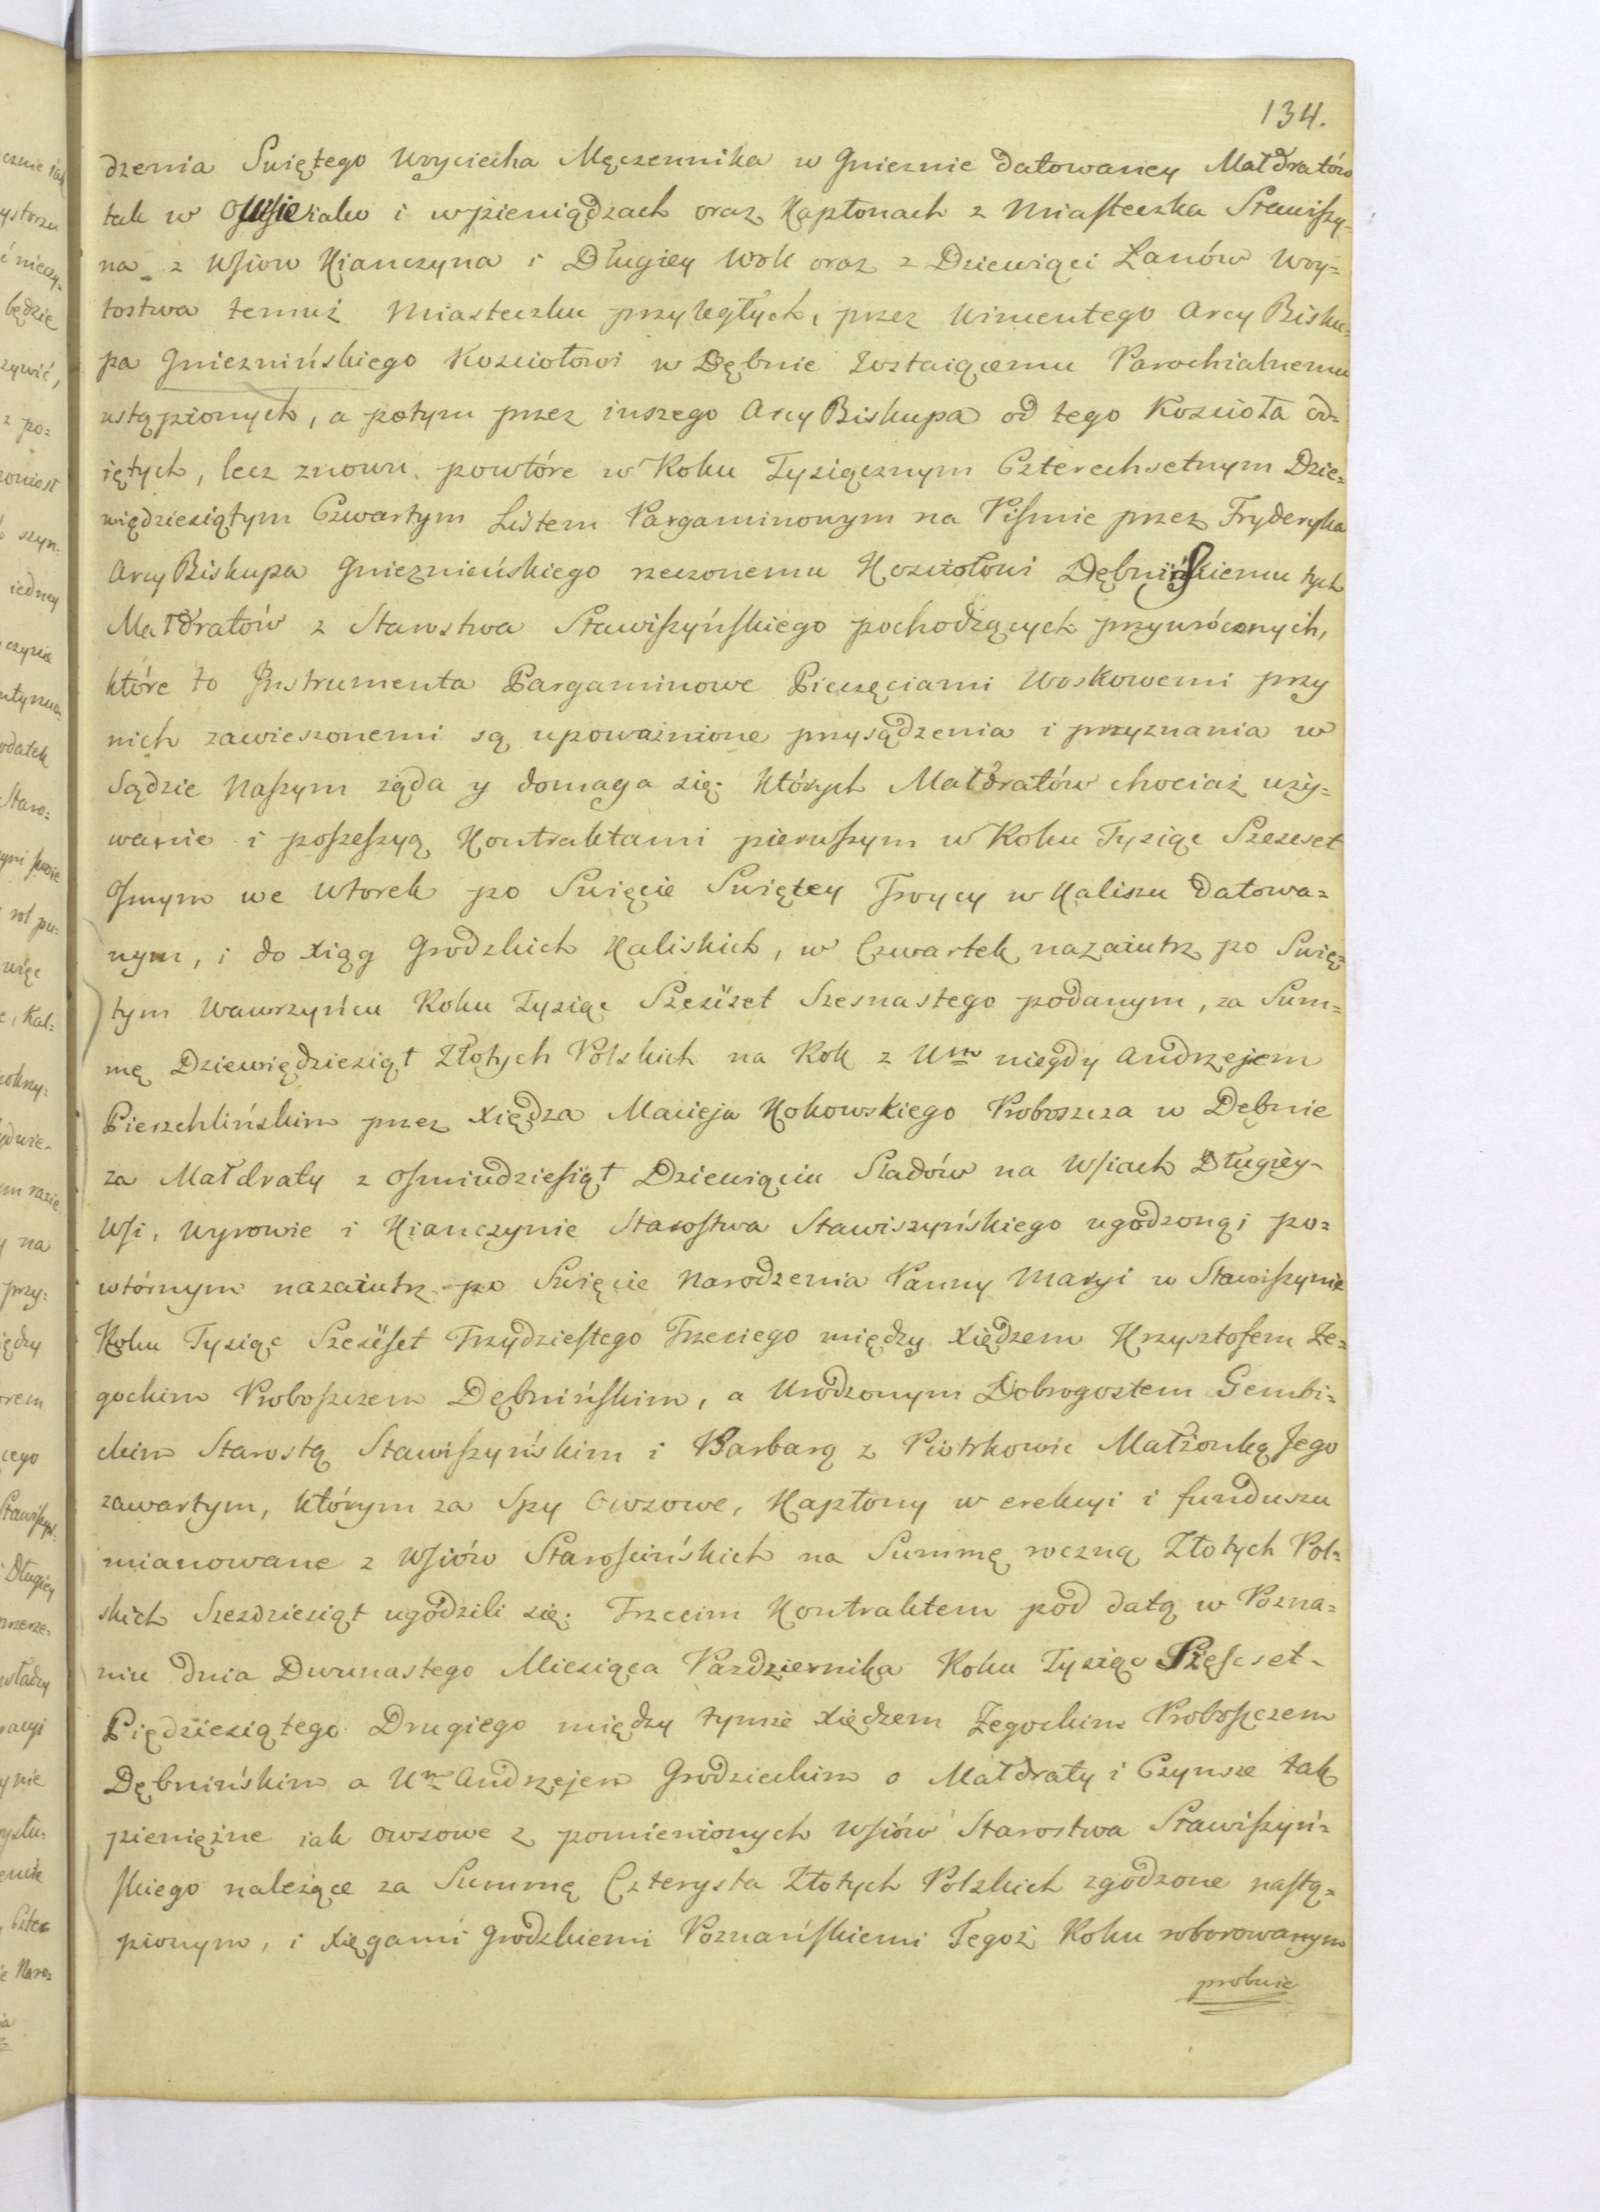 134.
dzenia Swiętego Woyciecha Męczennika w Gnieznie datowaney Małdratów
tak w Owsie iako i w pieniądzach oraz Kapłonach z Miasteczka Stawiszy=
na z Wsiow Kianczyna i Długiey Wsi oraz z Dziewiąci Łanów Woy=
tostwa temuż Miasteczku przyległych, przez Wincentego Arcy Bisku=
pa Gnieznińskiego Kosciołowi w Dębnie Zostaiącemu Parochialnemu
ustąpionych, a potym przez inszego Arcy Biskupa od tego Koscioła od=
iętych, lecz znowu powtóre w Roku Tysiącznym Czterechsetnym Dzie=
więdziesiątym Czwartym Listem Pargaminowym na Pismie przez Fryderyka
Arcy Biskupa Gnieznieńskiego rzeczonemu Kosciołowi Dębnińskiemu tych
Małdratów z Starostwa Stawiszyńskiego pochodzących przywróconych,
które to Instrumenta Pargaminowe Pieczęciami Woskowemi przy
nich zawieszonemi są upoważnione przysądzenia i przyznania w
Sądzie Naszym żąda y domaga się. Których Małdratów chociaż uży=
wanie i possessyą Kontraktami pierwszym w Roku Tysiąc Szescset
Osmym we Wtorek po Swięcie Swiętey Troycy w Kaliszu datowa=
nym, i do Xiąg Grodzkich Kaliskich, w Czwartek nazaiutrz po Swię=
tym Wawrzyńcu Roku Tysiąc Szesćset Szesnastego podanym, za Sum=
mę Dziewiędziesiąt Złotych Polskich na Rok z Um niegdy Andrzejem
Pierzchlińskim przez Xiędza Macieja Kokowskiego Proboszcza w Dębnie
za Małdraty z Osmiudziesiąt Dziewiąciu Sladów na Wsiach Długiey=
Wsi, Wyrowie i Kianczynie Starostwa Stawiszyńskiego ugodzoną i po=
wtórnym nazaiutrz po Swięcie Narodzenia Panny Maryi w Stawiszynie
Roku Tysiąc Szesćset Trzydziestego Trzeciego między Xiędzem Krzysztofem Że=
gockim Proboszczem Dębnińskim, a Urodzonym Dobrogostem Gembi=
ckim Starostą Stawiszyńskim i Barbarą z Piotrkowic Małżonką Jego
zawartym, którym za Spy Owsowe, Kapłony w erekcyi i funduszu
mianowane z Wsiów Starościńskich na Summę roczną Złotych Pol=
skich Szesdziesiąt ugodzili się. Trzecim Kontraktem pod datą w Pozna=
niu dnia Dwunastego Miesiąca Pazdziernika Roku Tysiąc Szescset=
Pięćdziesiątego Drugiego między tymże Xiędzem Żegockim Proboszczem
Dębnińskim a Um Andrzejem Grodzieckim o Małdraty i Czynsze tak
pieniężne iak owsowe z pomienionych Wsiów Starostwa Stawiszyń=
skiego należące za Summę Czterysta Złotych Polskich zgodzone nastą=
pionym, i Xięgami Grodzkiemi Poznańskiemi Tegoż Roku roborowanym
probuie